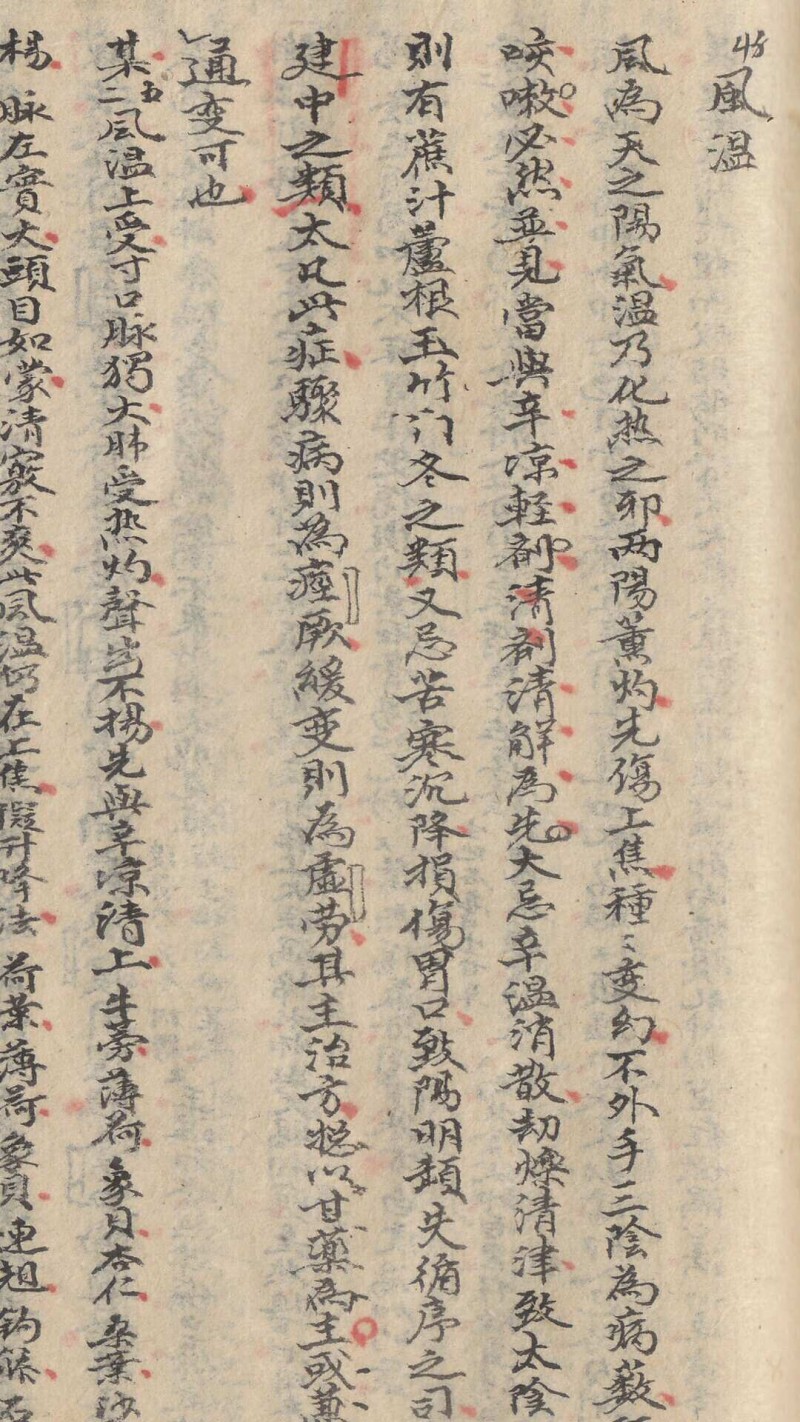 45
風温
風為天之陽氣温乃化热之邪两陽薰灼先傷上焦種〻变幻不外手三陰為病薮
咳嗽必然並見當與辛凉軽剤清剤清解為先大忌辛温消散劫燥清津致太陰
則有蔗汁蘆根玉竹门冬之類又忌苦寒沉降損傷胃口致陽明類失循序之司
建中之類太凡此症驟病則為痙厥緩变則為虚劳其主治方揔以甘藥為主或兼
通变可也
某二五風温上受寸口脉獨大肺受热灼聲岂不揚先與辛凉清上牛蒡薄荷象貝杏仁桑葉沙
楊脉左實大頭目如蒙清竅不爽此風温仍在上焦擬升降法荷葉薄荷象貝連翘钩藤石